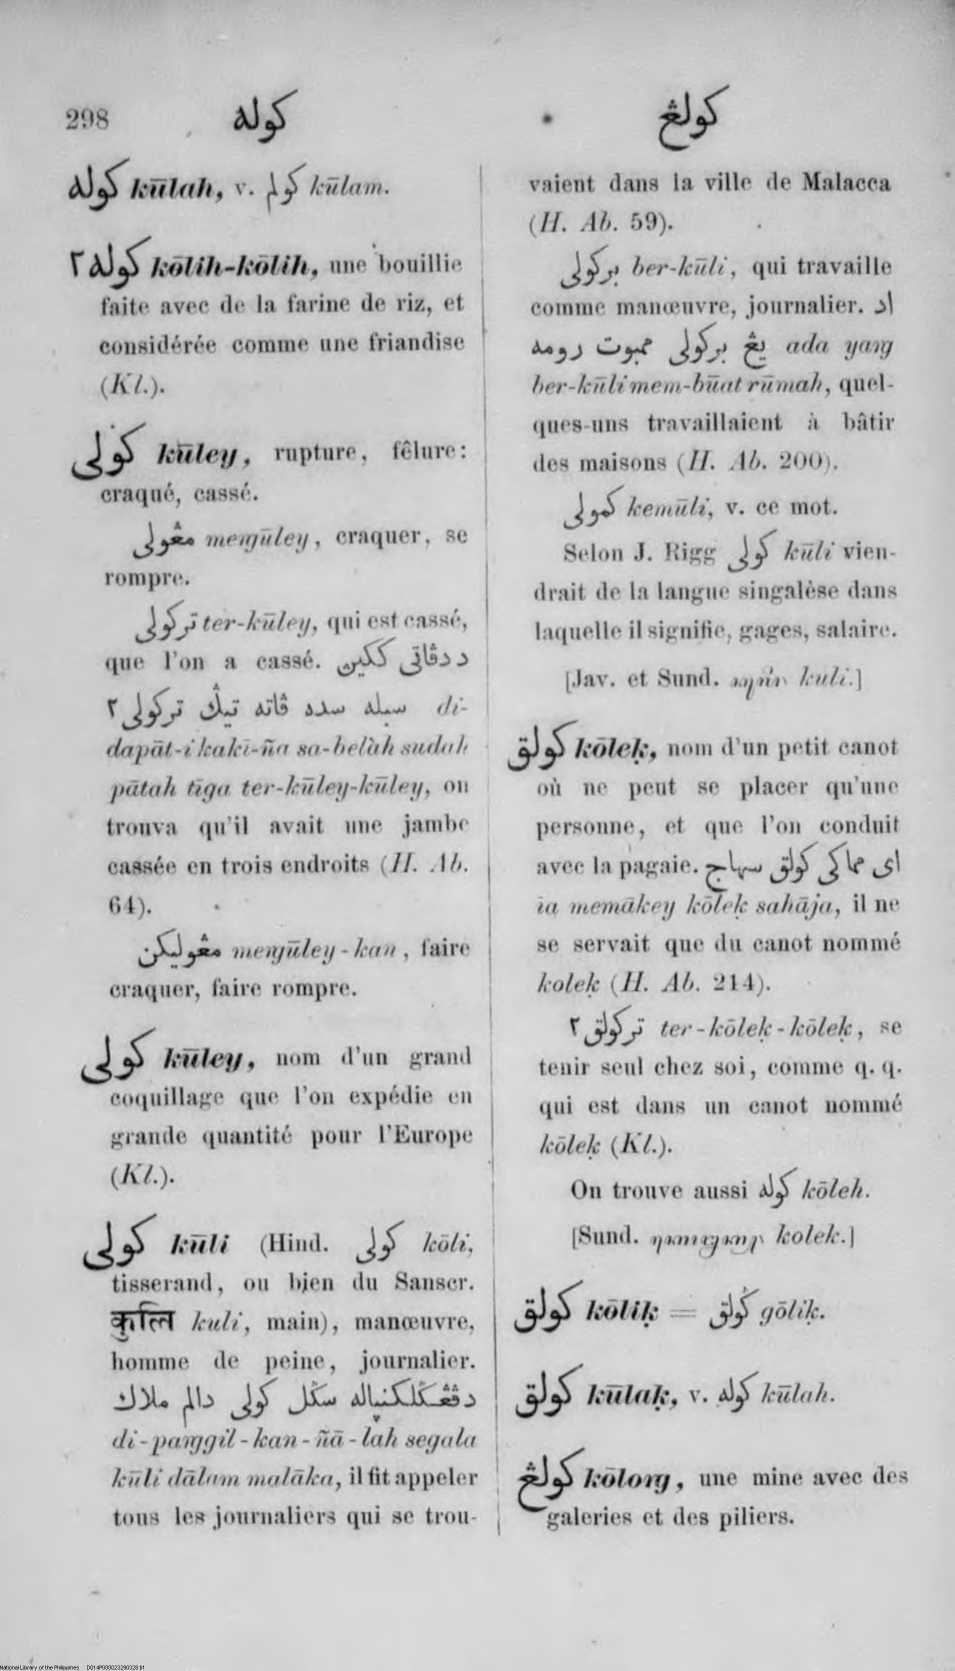 298
کوله
کولڠ
کوله kūlah, v. کولم kūlam.
کوله٢ kōlih-kōlih, une bouillie
faite avec de la farine de riz, et
considérée comme une friandise
(Kl.).
کولى kūley, rupture, fêlure:
craqué, cassé.
مڠولى meŋūley, craquer, se
rompre.
ترکولى ter-kūley, qui est cassé,
que l'on a cassé. ددڤاتى ککين
سبله سده ڤاته تيݢ ترکولى٢ di-
dapāt-i kakī-ña sa-belàh sudah
pātah tīga ter-kūley-kūley, on
trouva qu'il avait une jambe
cassée en trois endroits (H. Ab.
64).
مڠوليکن meŋūley-kan, faire
craquer, faire rompre.
کولى kūley, nom d'un grand
coquillage que l'on expédie en
grande quantité pour l'Europe
(Kl.).
کولى kūli (Hind. کولى kōli,
tisserand, ou bien du Sanscr.
कुलि kuli, main), manœuvre,
homme de peine, journalier.
دڤڠݢلکنياله سݢل کولى دالم ملاك
di-paŋgil-kan-ñā-lah segala
kūli dālam malāka, il fit appeler
tous les journaliers qui se trou-
vaient dans la ville de Malacca
(H. Ab. 59).
برکولى ber-kūli, qui travaille
comme manœuvre, journalier. اد
يڠ برکولى ممبوت رومه ada yaŋ
ber-kūli mem-būat rūmah, quel-
ques-uns travaillaient à bâtir
des maisons (H. Ab. 200).
کمولى kemūli, v. ce mot.
Selon J. Rigg کولى kūli vien-
drait de la langue singalèse dans
laquelle il signifie, gages, salaire.
[Jav. et Sund. kuli.]
کولق kōleḳ, nom d'un petit canot
où ne peut se placer qu'une
personne, et que l'on conduit
avec la pagaie. اى مماکى کولق سهاج
ia memākey kōleḳ sahāja, il ne
se servait que du canot nommé
koleḳ (H. Ab. 214).
ترکولق٢ ter-kōleḳ-kōleḳ, se
tenir seul chez soi, comme q. q.
qui est dans un canot nommé
kōleḳ (Kl.).
On trouve aussi کوله kōleh.
[Sund. kolek.]
کولق kōliḳ = ݢولق gōliḳ.
کولق kūlaḳ, v. کوله kūlah.
کولڠ kōloŋ, une mine avec des
galeries et des piliers.
National Library of the Philippines